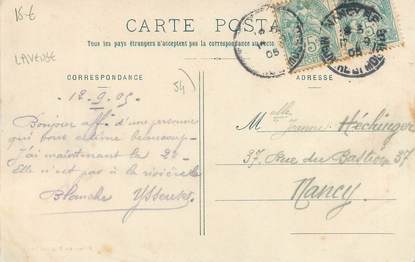 15€
LAVEUSE
54
CARTE POSTALE
Tous les pays étrangers n'acceptent pas la correspondance au
CORRESPONDANCE
ADRESSE
12.9.05
Bonjour aff. d'une personne
qui vous estime beaucoup
J'ai maintenant le 22
Elle n'est pas à la rivière
Blanche
Melle Jeanne Hechinger
37. Rue du Bastion 37
Nancy.